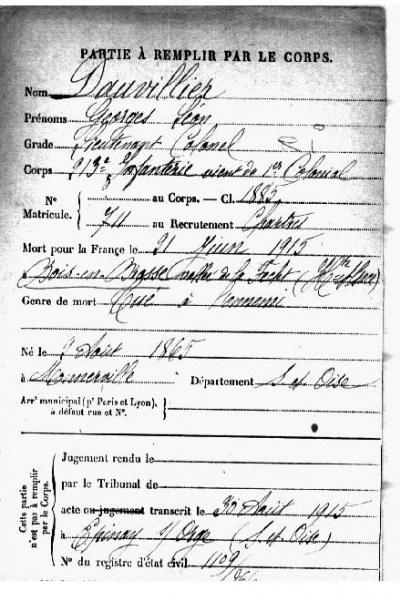 PARTIE À REMPLIR PAR LE CORPS.
Nom Dauvillier
Prénoms Georges Léon
Grade Lieutenant Colonel
Corps 213e Infanterie vient du 1er Colonial
N° Matricule. { au Corps. — Cl. 1885
711 au Recrutement Chartres
Mort pour la France le 21 Juin 1915
Bois-en- vallée de la Fecht
Genre de mort Tué à l'ennemi
Né le Août 1865
à Monnerville Département S et Oise
Arr^t municipal (p^r Paris et Lyon), à défaut rue et N°. }
Cette partie n'est pas à remplir par le Corps. {
Jugement rendu le
par le Tribunal de
acte ou jugement transcrit le 30 Août 1915
à Epinay s/ Orge (S. et Oise)
N° du registre d'état civil 1109